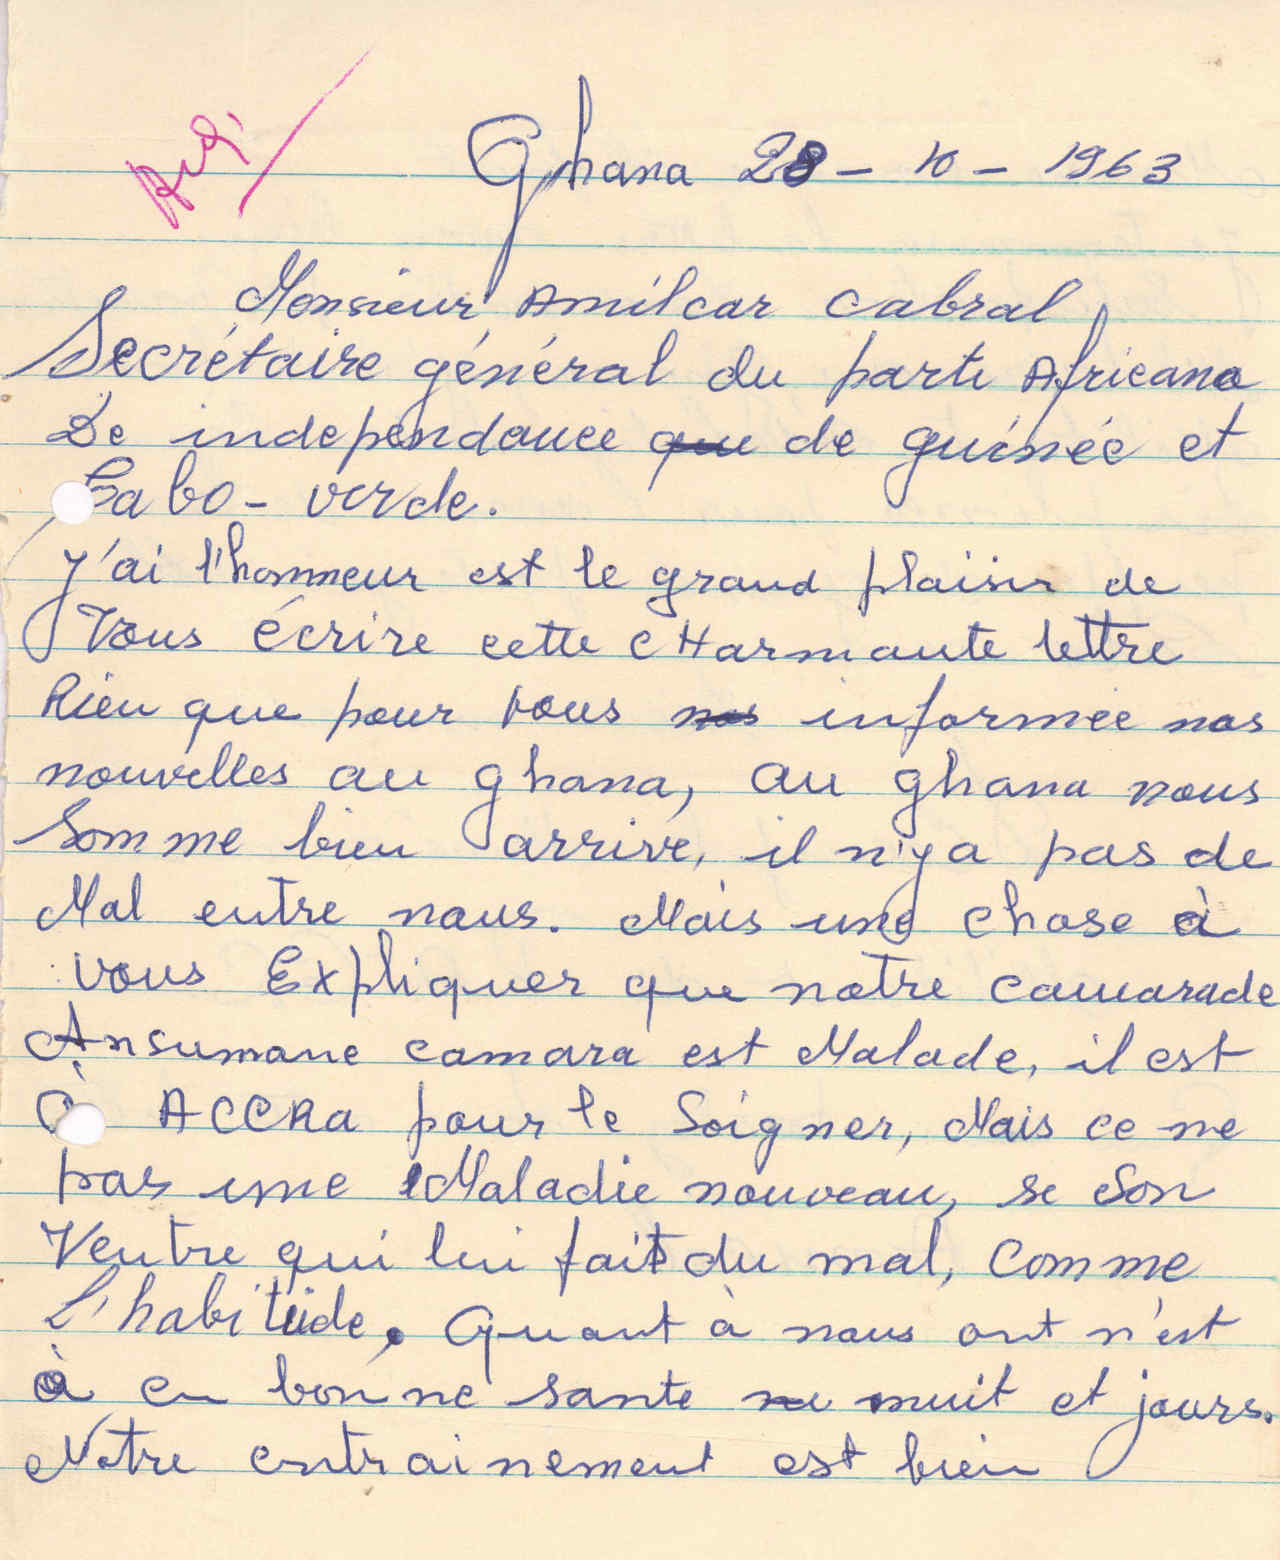 Arq.
Ghana 28 - 10 - 1963
Monsieur Amilcar Cabral
Secrétaire général du parti Africano
De independance que de guinée et
Cabo - verde.
J'ai l'honneur est le grand plaisir de
Vous écrire cette cHarmante lettre
Rien que pour vous nos informée nos
nouvelles au ghana, au ghana nous
Somme bien arrivé, il n'y a pas de
Mal entre nous. Mais une chose à
vous Expliquer que notre camarade
Ansumane camara est Malade, il est
à ACCRa pour le Soigner, Mais ce ne
pas une Maladie nouveau, se Son
Ventre qui lui fait du mal, comme
L'habitude. Quant à nous ont n'est
à en bonne sante nuit et jours.
Notre entrainement est bien